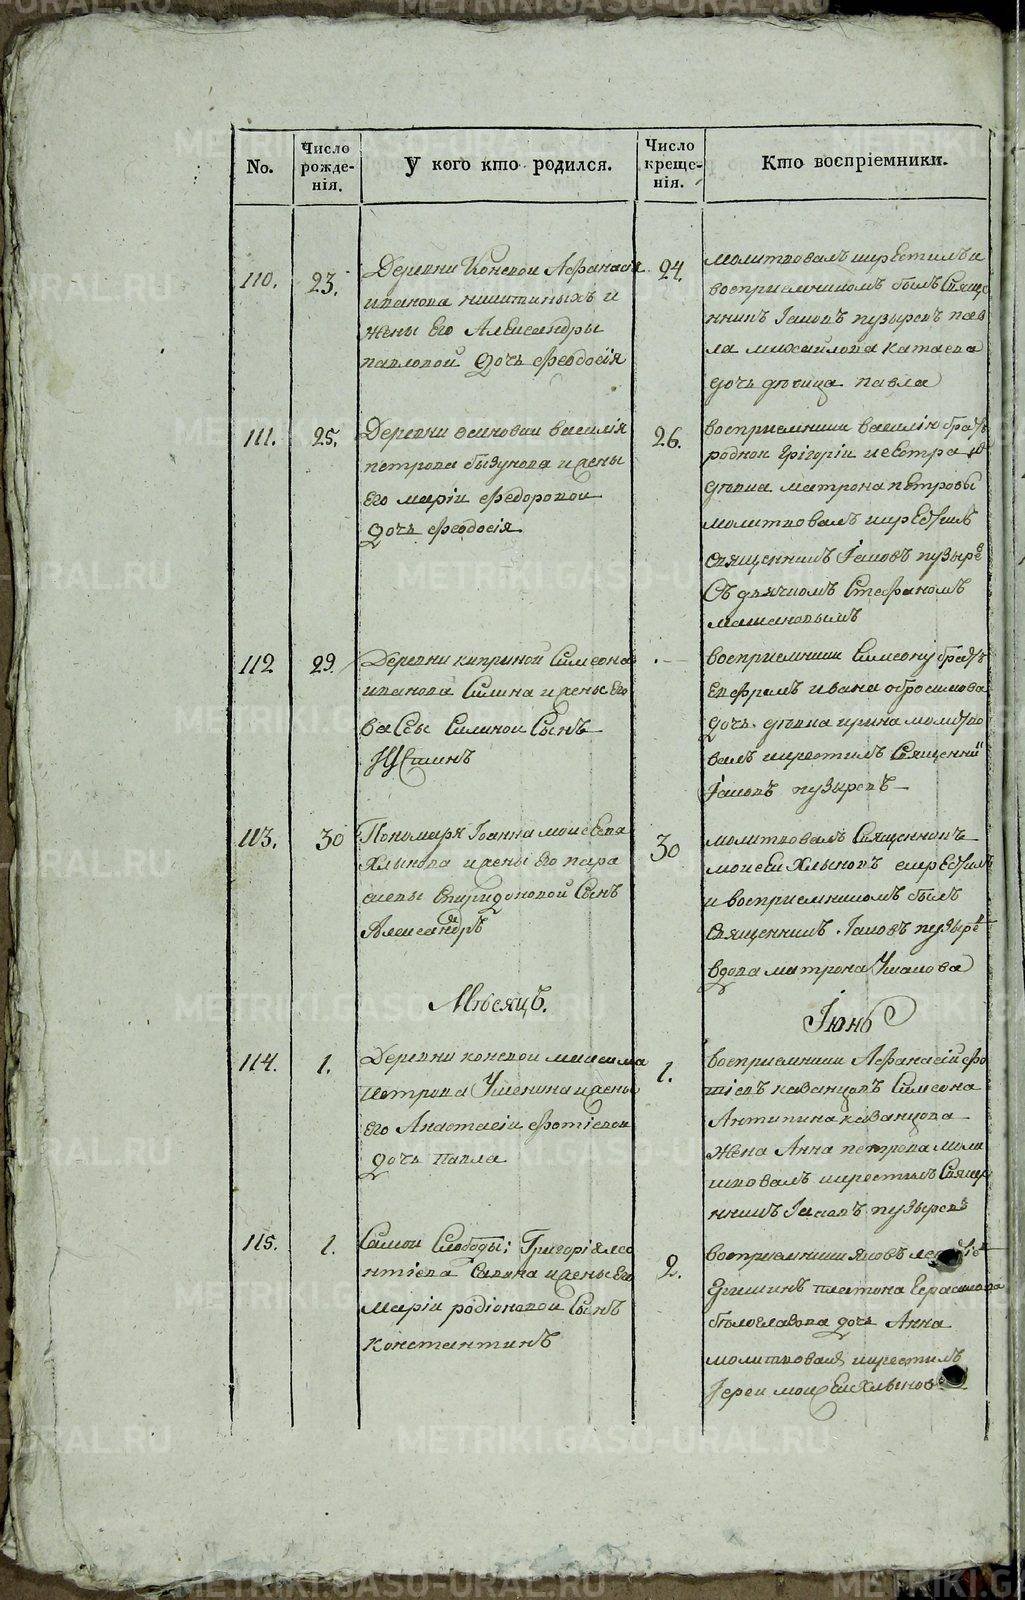 No.
Число рожде-нія.
У кого кто родился.
Число креще-нія.
Кто воспріемники.
110.
23.
Деревни Коневои Афанасія
иванова никитиныхъ и
жены Его Александры
павловой Дочь Феодосія
24.
молитвовалъ икрестилъ и
восприемникомъ былъ Свяще
нникъ Iаковъ пузыревъ пав
ла михайлова катаева
дочь девица павла
111.
25.
Деревни василія
петрова бызунова ижены
Его маріи Федоровои
Дочь Феодосія
26.
восприемники василію братъ
родной григоріи исестра
девка матрона петровы
молитвовалъ икрестилъ
священникъ Iаковъ пузыре
Съ дьячкомъ Стефаномъ
112
29.
Деревни киприной Симеона
иванова Силина ижены Его
васСы Силиной Сынъ
.—
восприемники Симеону братъ
Ефремъ ивана абросимова
Дочь девка ирина молитво
валъ икрестилъ Священни
Iаковъ пузыревъ
113.
30
Пономаря Iоанна моисеева
Хлынова ижены Его пара
скевы Спиридоновой Сынъ
Александръ
30
молитвовалъ Священникъ
моисеи Хлыновъ акрестилъ
и восприемникомъ былъ
священникъ Iаковъ пузыре
вдова матрона Ушакова
Месяцъ.
Iюнь
114.
1.
Деревни коневои максима
петрова Ушенина ижены
Его Анастасіи Фотіевои
Дочь Павла
1.
восприемники Афанасій Фо
тіевъ каванцовъ Симеона
Антипина каванцова
Жена Анна петрова моли
твовалъ икрестилъ Свяще
нникъ Iаковъ пузыревъ
115.
1.
Самои Слободы: Григорія лео
нтіева ижены Его
Маріи родіоновой Сынъ
константинъ
2.
восприемники яковъ
платона Герасимова
белоглазова дочь Анна
молитвовалъ икрестилъ
Iереи моисеи Хлыновъ
METRIKI.GASO-URAL.RU